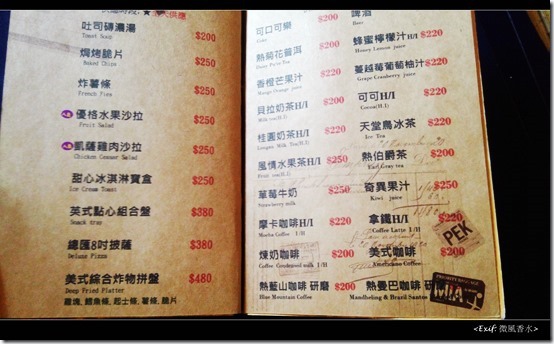 吐司磚濃湯 $200
Toast Soup
焗烤脆片 $250
Baked Chips
炸薯條 $250
French Fies
優格水果沙拉 $250
Fruit Salad
凱薩雞肉沙拉 $250
Chicken Ceasar Salad
甜心冰淇淋寶盒 $250
Ice Cream Toast
英式點心組合盤 $380
Snack tray
總匯8吋披薩 $380
Deluxe Pizza
美式綜合炸物拼盤 $480
Deep Fried Platter
雞塊, 鱈魚條, 起士條, 薯條, 脆片
可口可樂 $200
Coke
熱菊花普洱 $200
香橙芒果汁 $220
Mango Orange juice
貝拉奶茶H/I $200
Milk tea(H.I)
桂圓奶茶H/I $220
Longan Tea(H.I)
風情水果茶H/I $250
Fruit tea(H.I)
草莓牛奶 $250
Strawberry milk
摩卡咖啡H/I $220
Mocha Coffee I/H
煉奶咖啡 $200
Coffee Condensed milk I/H
熱藍山咖啡 研磨 $200
Blue Mountain Coffee
啤酒
Beer
蜂蜜檸檬汁H/I $220
Honey Lemon juice
蔓越莓葡萄柚汁 $220
Grape Cranberry juice
可可H/I $220
Cocoa(H.I)
天堂鳥冰茶 $220
Ice Tea
熱伯爵茶 $200
Earl Gray tea
奇異果汁 $250
Kiwi juice
拿鐵H/I $220
Coffee Latte I/H
美式咖啡 $200
Americano Coffee
熱曼巴咖啡 研磨
Mandheling & Brazil Santos
PEK
MIA
<Exif: 微風香水>